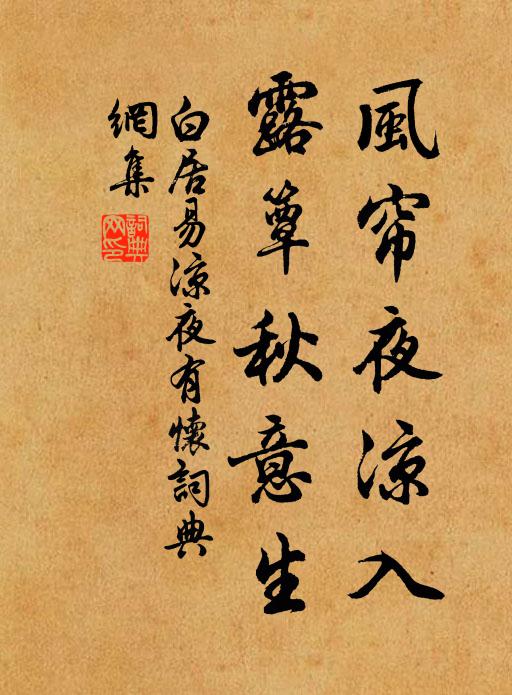 風帘夜涼入
露簟秋意生
白居易涼夜有懷詞典
網集
詞典
网印